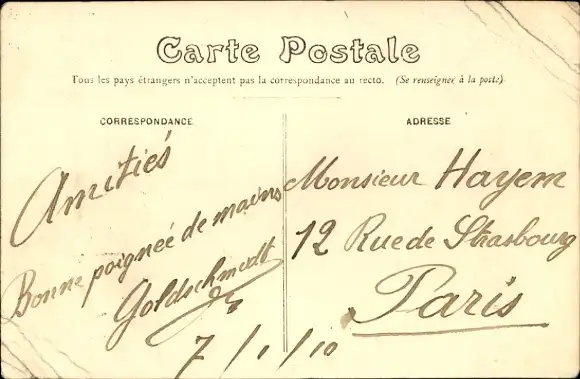 Carte Postale
Tous les pays étrangers n'acceptent pas la correspondance au recto. (Se renseigner à la poste)
CORRESPONDANCE
Amitiés
Bonne poigneé de mains
Goldschmidt
7/1/10
ADRESSE
Monsieur Hayem
12 Rue de Strasbourg
Paris